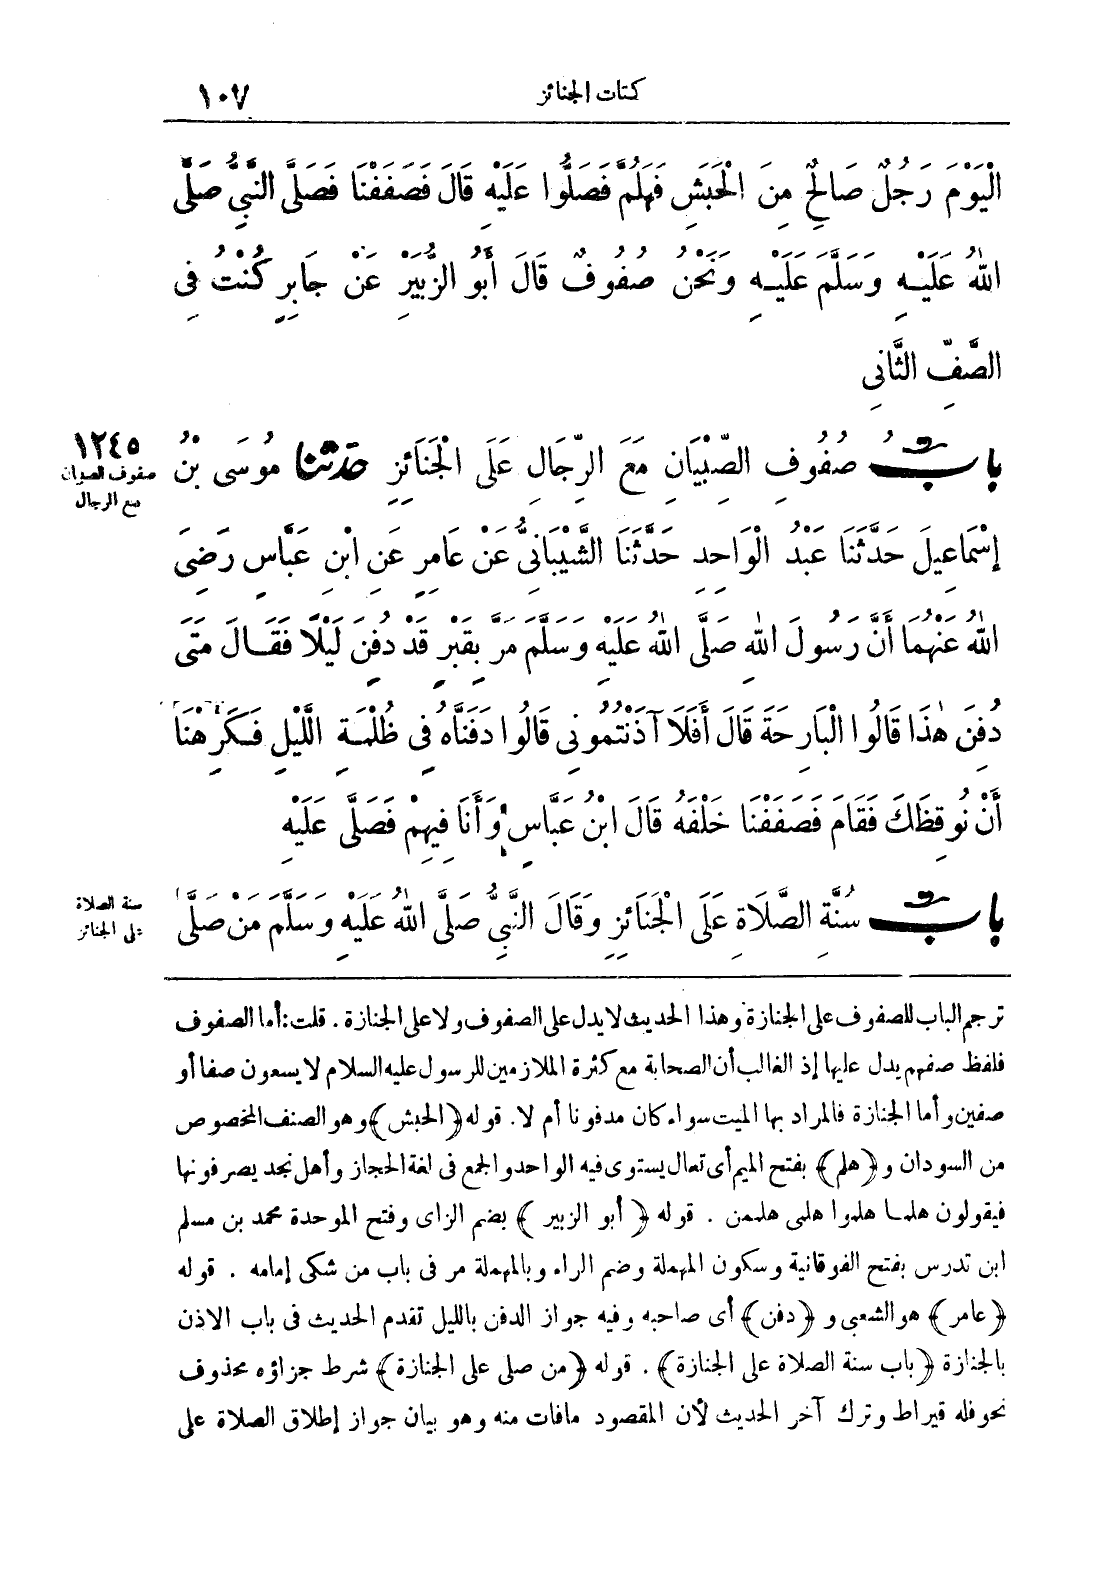 كتاب الجنائز
١٠٧
الْيَوْمَ رَجُلٌ صَالِحٌ مِنَ الْحَبَشِ فَهَلُمَّ فَصَلُّوا عَلَيْهِ قَالَ فَصَفَفْنَا فَصَلَّى النَّبِيُّ صَلَّى
اللهُ عَلَيْهِ وَسَلَّمَ عَلَيْهِ وَنَحْنُ صُفُوفٌ قَالَ أَبُو الزُّبَيْرِ عَنْ جَابِرٍ كُنْتُ فِى
الصَّفِّ الثَّانِى
١٢٤٥
صفوف الصبيان
مع الرجال
بابُ صُفُوفِ الصِّبْيَانِ مَعَ الرِّجَالِ عَلَى الْجَنَائِزِ حَدَّثَنَا مُوسَى بْنُ
إِسْمَاعِيلَ حَدَّثَنَا عَبْدُ الْوَاحِدِ حَدَّثَنَا الشَّيْبَانِىُّ عَنْ عَامِرٍ عَنِ ابْنِ عَبَّاسٍ رَضِىَ
اللهُ عَنْهُمَا أَنَّ رَسُولَ اللهِ صَلَّى اللهُ عَلَيْهِ وَسَلَّمَ مَرَّ بِقَبْرٍ قَدْ دُفِنَ لَيْلًا فَقَالَ مَتَى
دُفِنَ هٰذَا قَالُوا الْبَارِحَةَ قَالَ أَفَلَا آذَنْتُمُونِى قَالُوا دَفَنَّاهُ فِى ظُلْمَةِ اللَّيْلِ فَكَرِهْنَا
أَنْ نُوقِظَكَ فَقَامَ فَصَفَفْنَا خَلْفَهُ قَالَ ابْنُ عَبَّاسٍ وَأَنَا فِيهِمْ فَصَلَّى عَلَيْهِ
سنة الصلاة
على الجنائز
باب سُنَّةِ الصَّلَاةِ عَلَى الْجَنَائِزِ وَقَالَ النَّبِىُّ صَلَّى اللهُ عَلَيْهِ وَسَلَّمَ مَنْ صَلَّى
ترجم الباب للصفوف على الجنازة وهذا الحديث لا يدل على الصفوف ولا على الجنازة . قلت : أما الصفوف
فلفظ صفهم يدل عليها إذ الغالب أن الصحابة مع كثرة الملازمين للرسول عليه السلام لا يسعون صفا أو
صفين وأما الجنازة فالمراد بها الميت سواء كان مدفونا أم لا . قوله ﴿الحبش﴾ وهو الصنف المخصوص
من السودان و﴿هلم﴾ بفتح الميم أى تعال يستوى فيه الواحد والجمع فى لغة الحجاز وأهل نجد يصرفونها
فيقولون هلما هلموا هلمى هلممن . قوله ﴿أبو الزبير﴾ بضم الزاى وفتح الموحدة محمد بن مسلم
ابن تدرس بفتح الفوقانية وسكون المهملة وضم الراء وبالمهملة مر فى باب من شكى إمامه . قوله
﴿عامر﴾ هو الشعبى و ﴿دفن﴾ أى صاحبه وفيه جواز الدفن بالليل تقدم الحديث فى باب الاذن
بالجنازة ﴿باب سنة الصلاة على الجنازة﴾ . قوله ﴿من صلى على الجنازة﴾ شرط جزاؤه محذوف
نحو فله قيراط وترك آخر الحديث لأن المقصود مافات منه وهو بيان جواز إطلاق الصلاة على